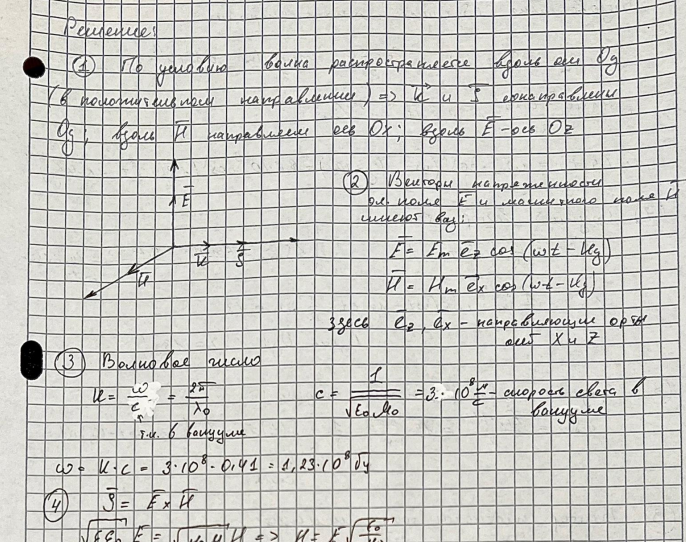 Решение:
① По условию волна распространяется вдоль оси Oy
(в положительном направлении) => k⃗ и S̄ сонаправлены
Oy; вдоль H̄ направляем ось Ox; вдоль Ē - ось Oz
Ē
k̄ S̄
H̄
② Векторы напряженности
эл. поля Ē и магнитного поля H̄
имеют вид:
Ē = Em ēz cos(ωt - ky)
H̄ = Hm ēx cos(ωt - ky)
здесь ēz, ēx - направляющие орты
осей X и Z
③ Волновое число
k = ω/c = 2π/λ₀
т.к. в вакууме
c = 1/√(ε₀μ₀) = 3·10⁸ м/с - скорость света в
вакууме
ω = k·c = 3·10⁸·0,41 = 1,23·10⁸ Гц
④ S̄ = Ē × H̄